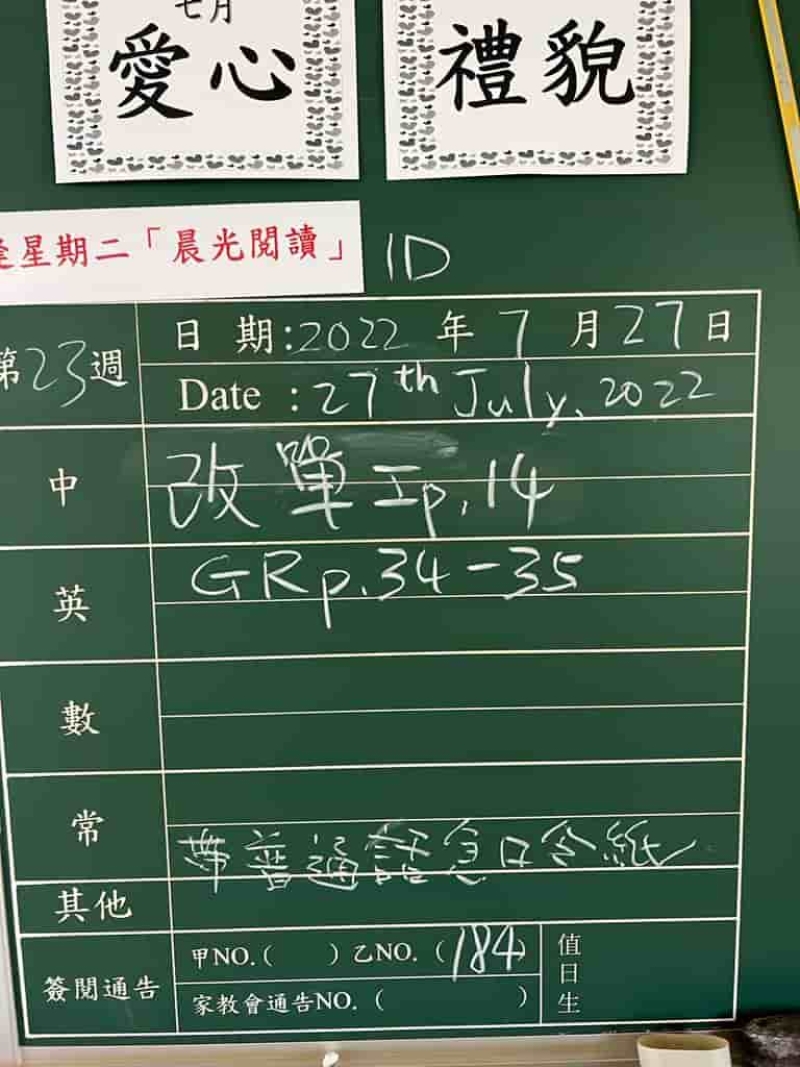 七月
愛心
禮貌
逢星期二「晨光閱讀」
1D
第23週
日 期:2022 年 7 月27日
Date :27th July, 2022
中
改單工p.14
英
GRp.34-35
數
常
帶普通話急口令紙
其他
簽閱通告
甲NO.( )乙NO.(184)
家教會通告NO.( )
值日生